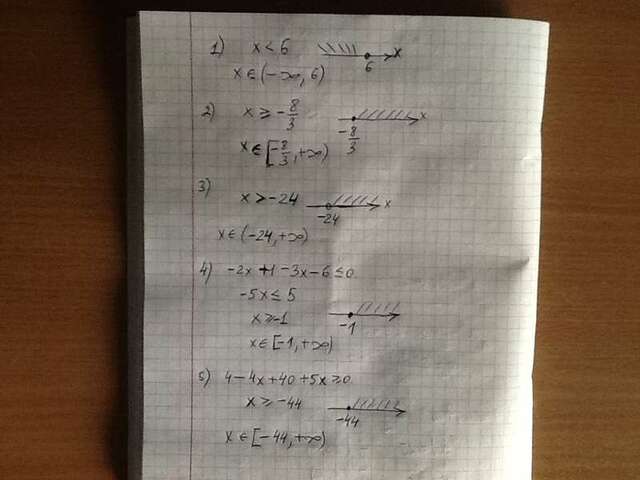 1) x < 6
6 x
x ∈ (-∞, 6)
2) x ≥ -8/3
-8/3 x
x ∈ [-8/3, +∞)
3) x > -24
-24 x
x ∈ (-24, +∞)
4) -2x + 1 - 3x - 6 ≤ 0
-5x ≤ 5
x ≥ -1
-1
x ∈ [-1, +∞)
5) 4 - 4x + 40 + 5x ≥ 0
x ≥ -44
-44
x ∈ [-44, +∞)